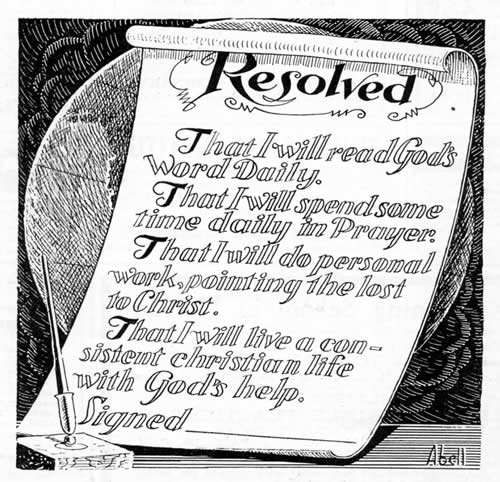 Resolved
That I will read God's
Word Daily.
That I will spend some
time daily in Prayer.
That I will do personal
work, pointing the lost
to Christ.
That I will live a con-
sistent christian life
with God's help.
Signed
Abell